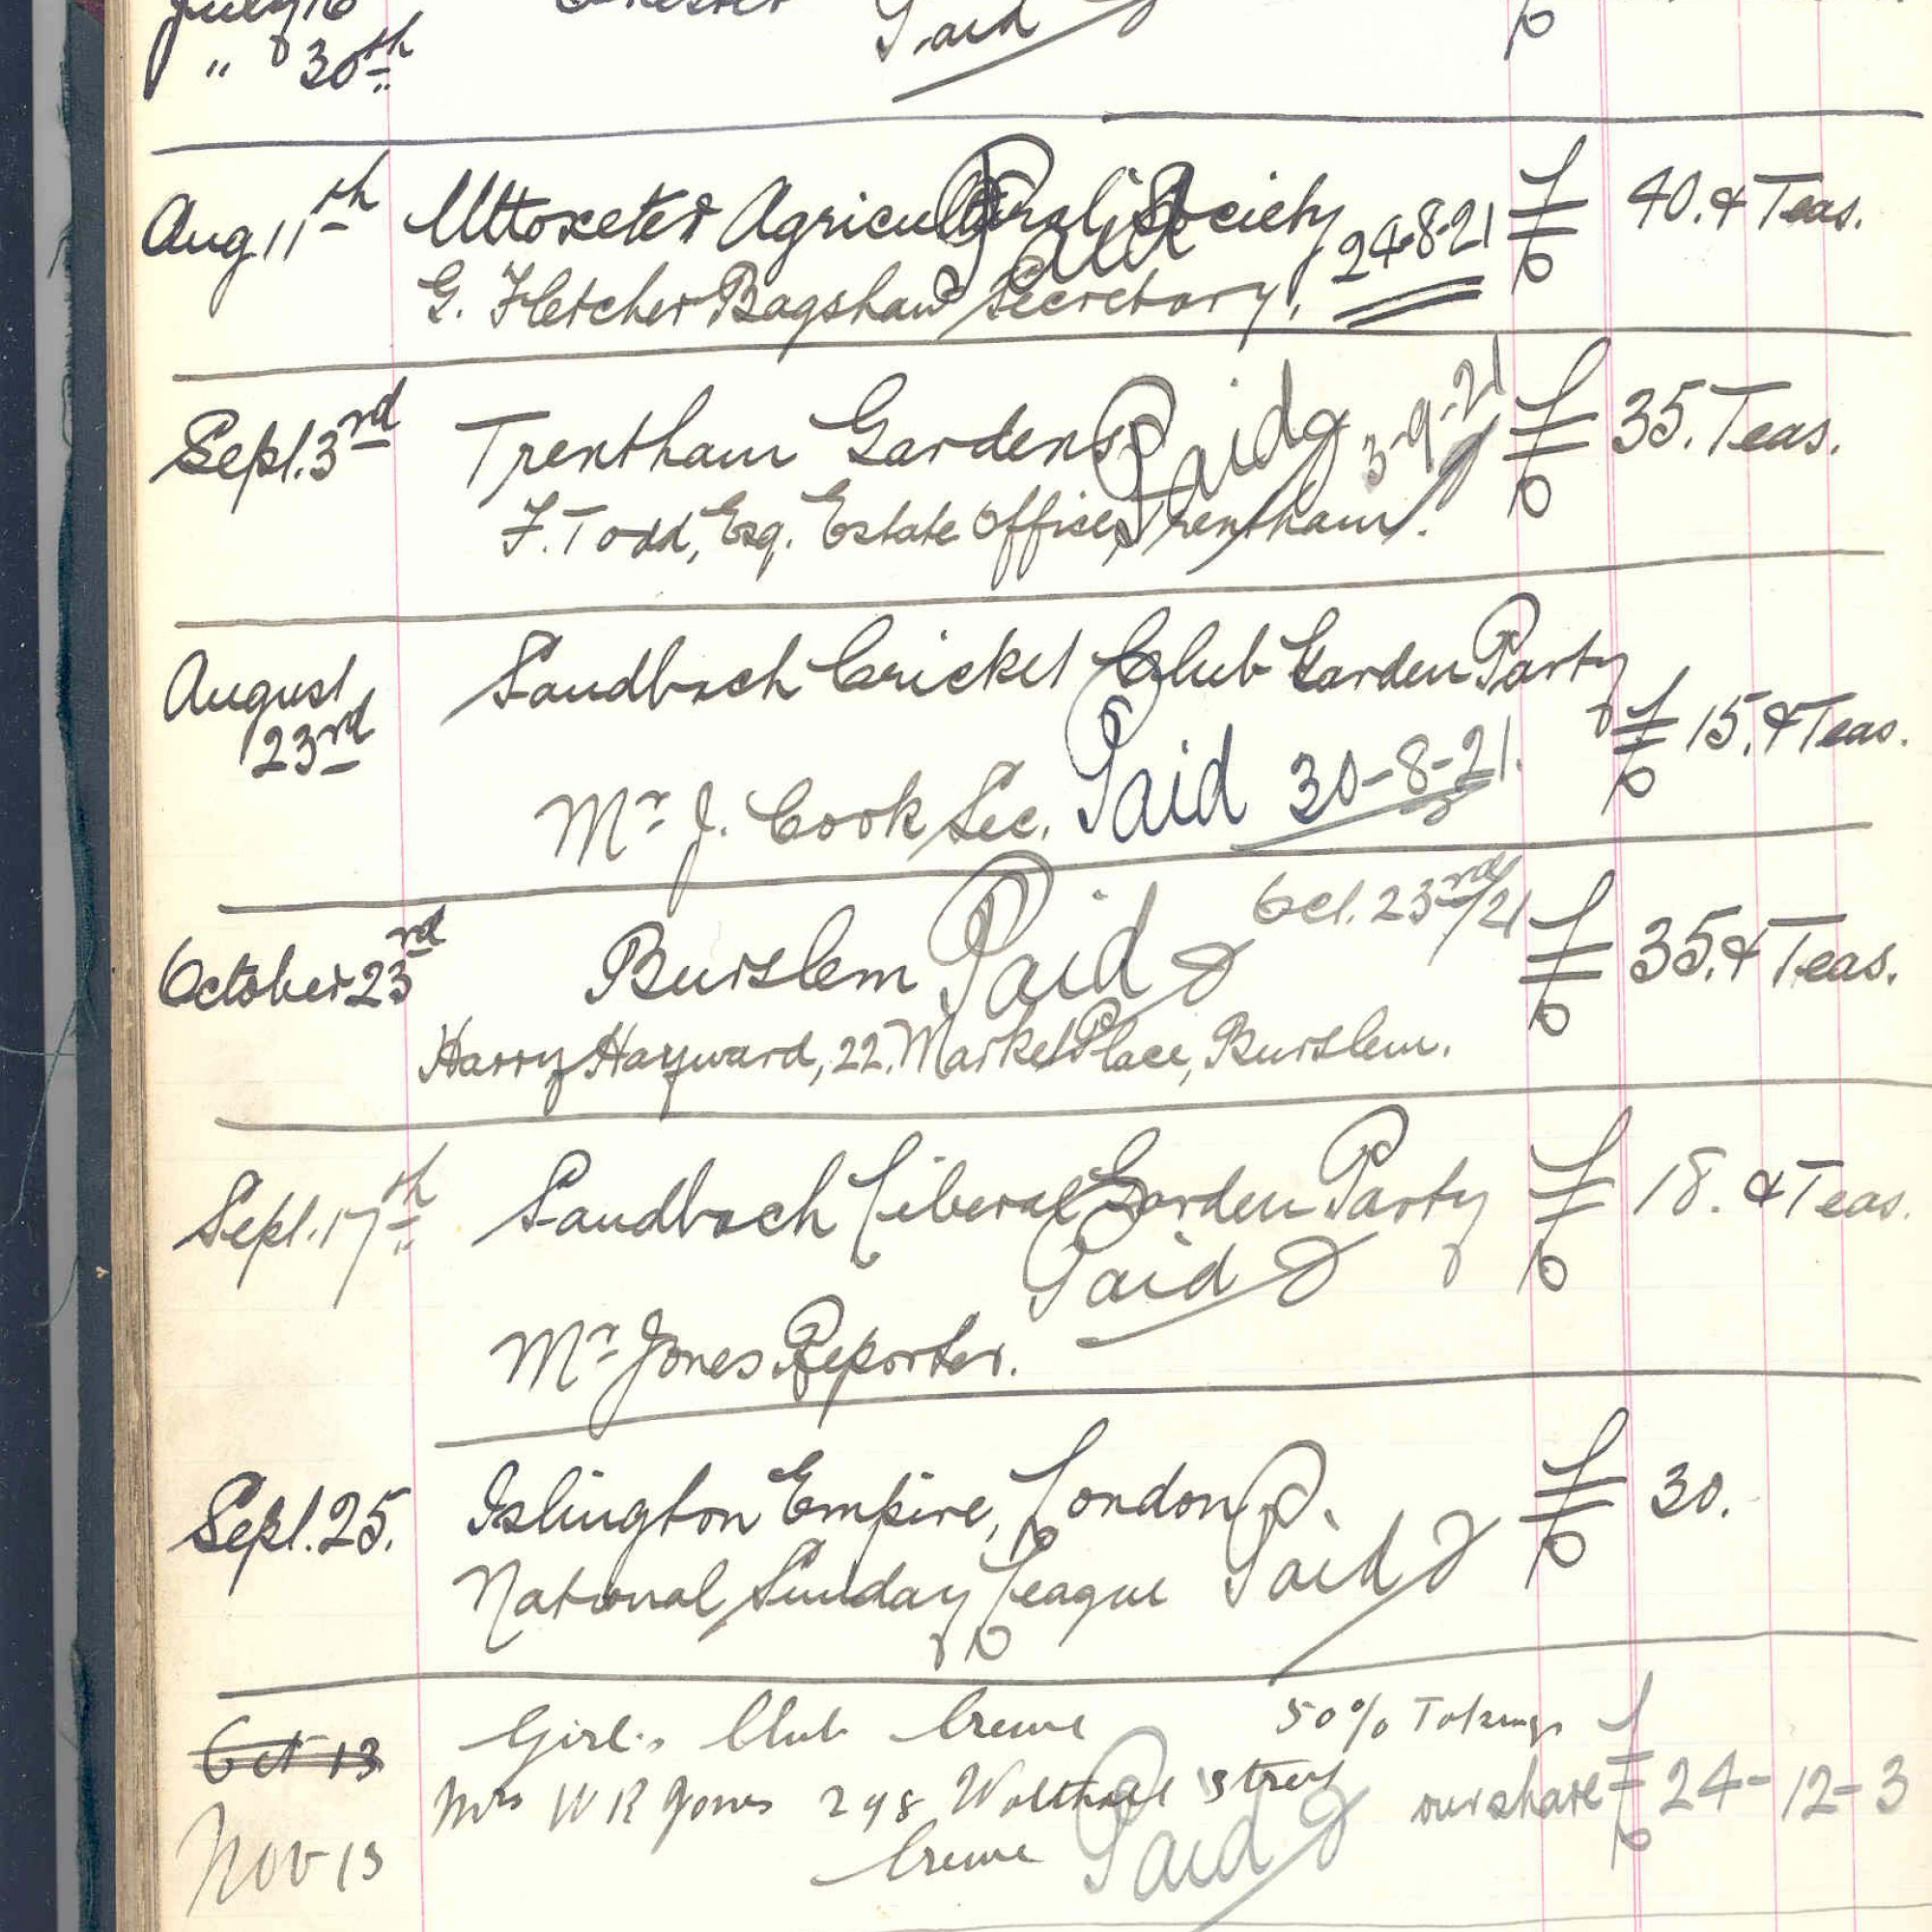 July 16
Paid
" 30th
Aug 11th Uttoxeter Agricultural Society Paid 24-8-21 £ 40. & Teas.
G. Fletcher Bagshaw Secretary.
Sept. 3rd Trentham Gardens Paid 3-9-21 £ 35. Teas.
F. Todd, Esq. Estate Office, Trentham.
August Sandbach Cricket Club Garden Party
23rd £ 15. & Teas.
Mr J. Cook Sec. Paid 30-8-21.
October 23rd Burslem Paid Oct. 23rd/21 £ 35. & Teas.
Harry Hayward, 22. Market Place, Burslem.
Sept. 17th Sandbach Liberal Garden Party £ 18. & Teas.
Paid
Mr Jones Reporter.
Sept. 25. Islington Empire, London £ 30.
National Sunday League Paid
Oct 13 Girls Club Crewe 50% Takings
Mrs W R Jones 298 Walthall Street our share £ 24-12-3
Nov 13 Crewe Paid